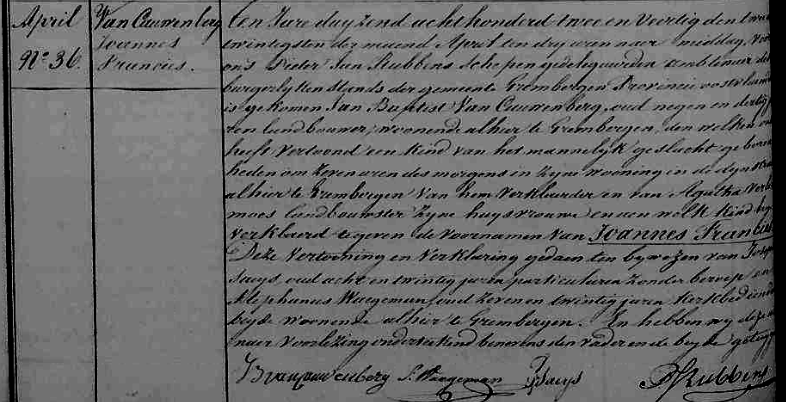 April
N° 36.
Van Cauwenberg
Joannes
Francies.
Een Jare duyzend acht honderd twee en veertig den twee
twintigsten der maend April ten dry uren naer middag, voor
ons Pieter Jan Rubbens schepen gedeligeerden ambtenaer des
burgerlyken stands der gemeente Grembergen Provincie oostvlaend
is gekomen Jan Baptist Van Cauwenberg, oud negen en dertig
ren landbouwer, woonende alhier te Grembergen, den welken ons
heeft vertoond een kind van het mannelyk geslacht gebore
heden om zeven uren des morgens in zyne wooning in de
alhier te Grembergen van hem verklaerder en van Agatha Verb
moes landbouwster zyne huysvrouwe en aen welk kind hy
verklaerd te geven de voornamen van Joannes Francies
Deze vertooning en verklaring gedaen ten bywezen van Joseph
Saeys, oud acht en twintig jaren particulieren zonder beroep en
Stephanus Waegeman, oud zeven en twintig jaren kerkbediende
beyde woonende alhier te Grembergen. En hebben wy deze
naer voorlezing onderteekend benevens den vader en de beyde getuyg
J B van cauwenberg S. Waegeman J Saeys PJ Rubbens